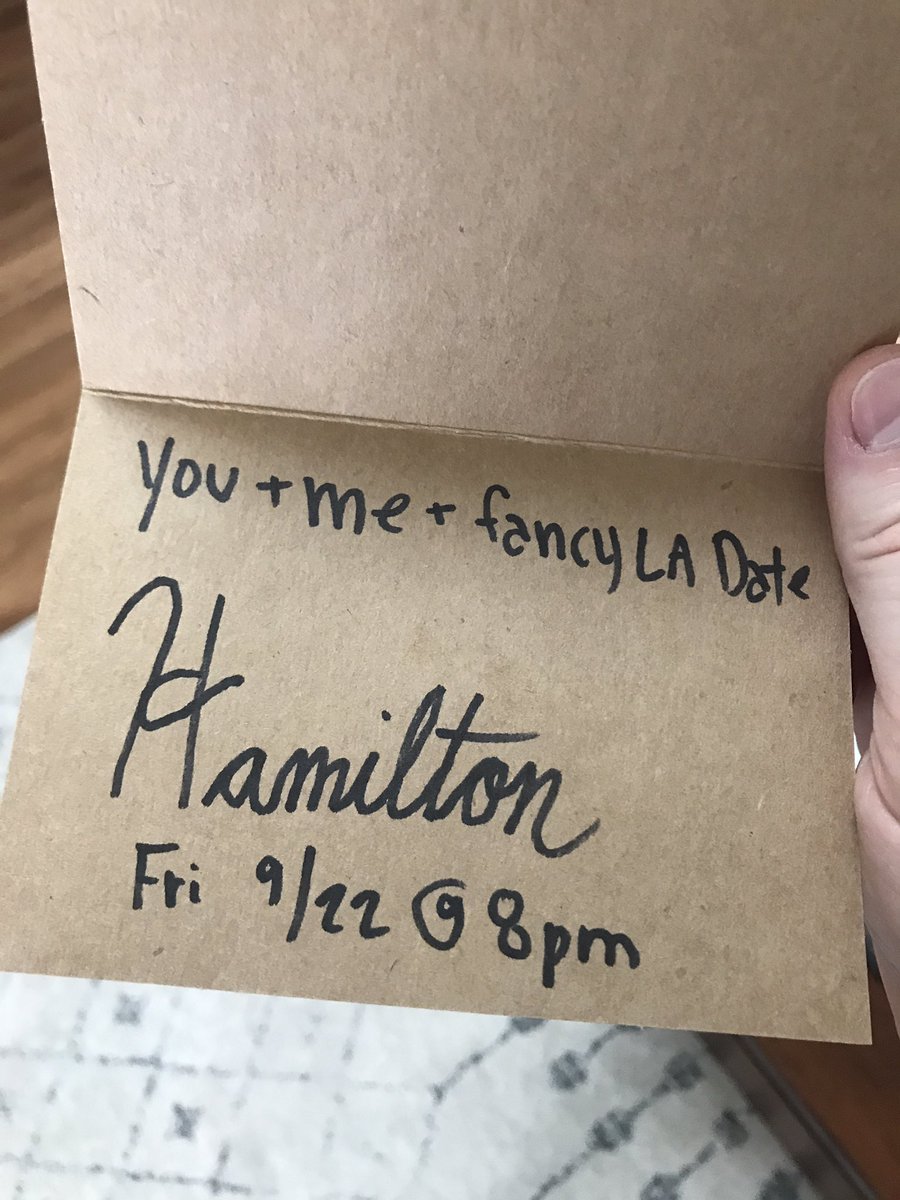 You + me + fancy LA Date
Hamilton
Fri 9/22 @ 8pm